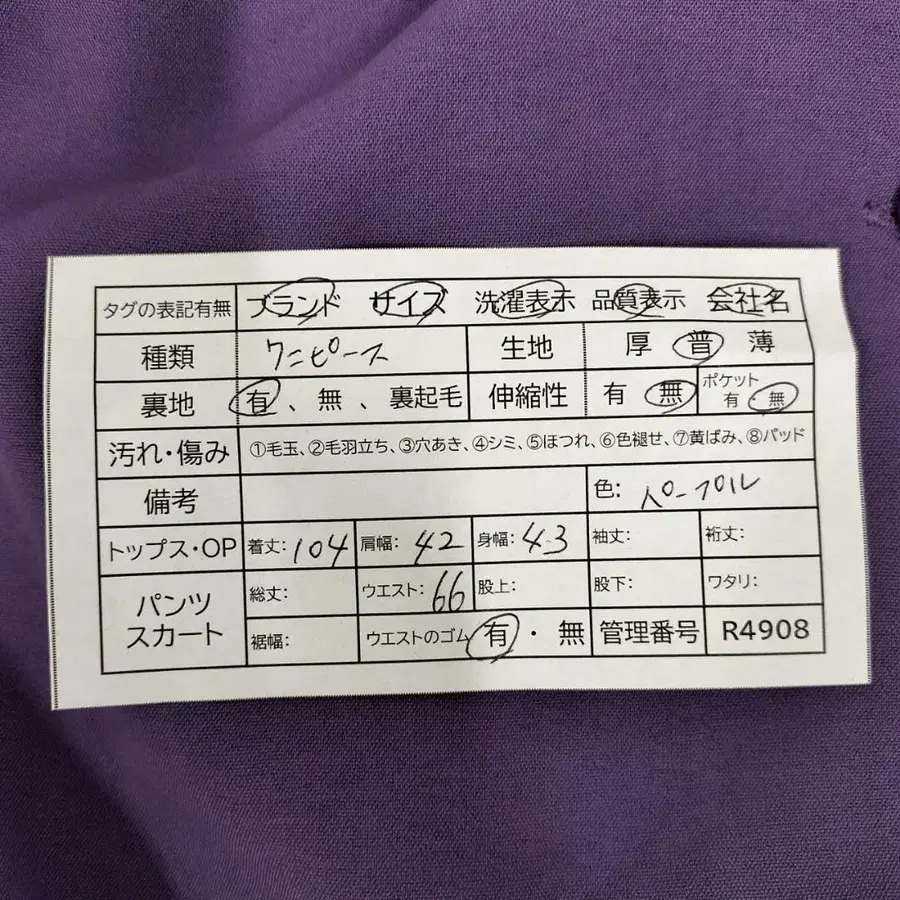 タグの表記有無 ブランド サイズ 洗濯表示 品質表示 会社名
種類 ワンピース 生地 厚 普 薄
裏地 有、無、裏起毛 伸縮性 有 無 ポケット 有・無
汚れ・傷み ①毛玉、②毛羽立ち、③穴あき、④シミ、⑤ほつれ、⑥色褪せ、⑦黄ばみ、⑧パッド
備考 色: パープル
トップス・OP 着丈: 104 肩幅: 42 身幅: 43 袖丈: 裄丈:
パンツ スカート 総丈: ウエスト: 66 股上: 股下: ワタリ:
裾幅: ウエストのゴム 有・無 管理番号 R4908